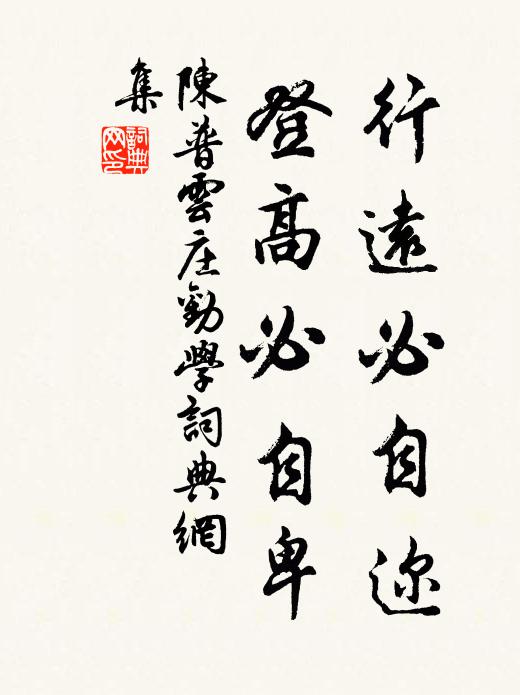 行遠必自迩
登高必自卑
陳普雲庄勸學詞典網
集
詞典
网印